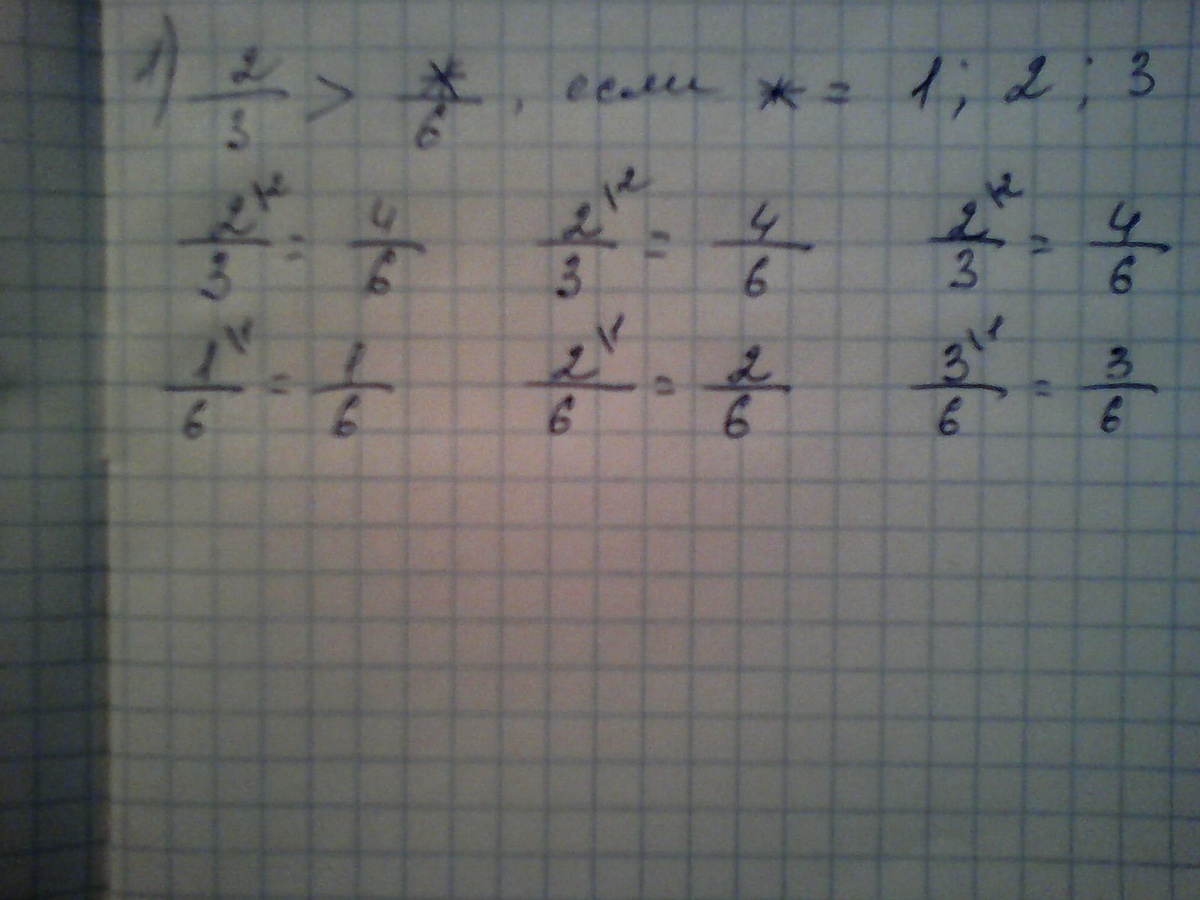 1) 2/3 > */6, если * = 1; 2; 3
2\2/3 = 4/6 2\2/3 = 4/6 2\2/3 = 4/6
1\1/6 = 1/6 2\1/6 = 2/6 3\1/6 = 3/6